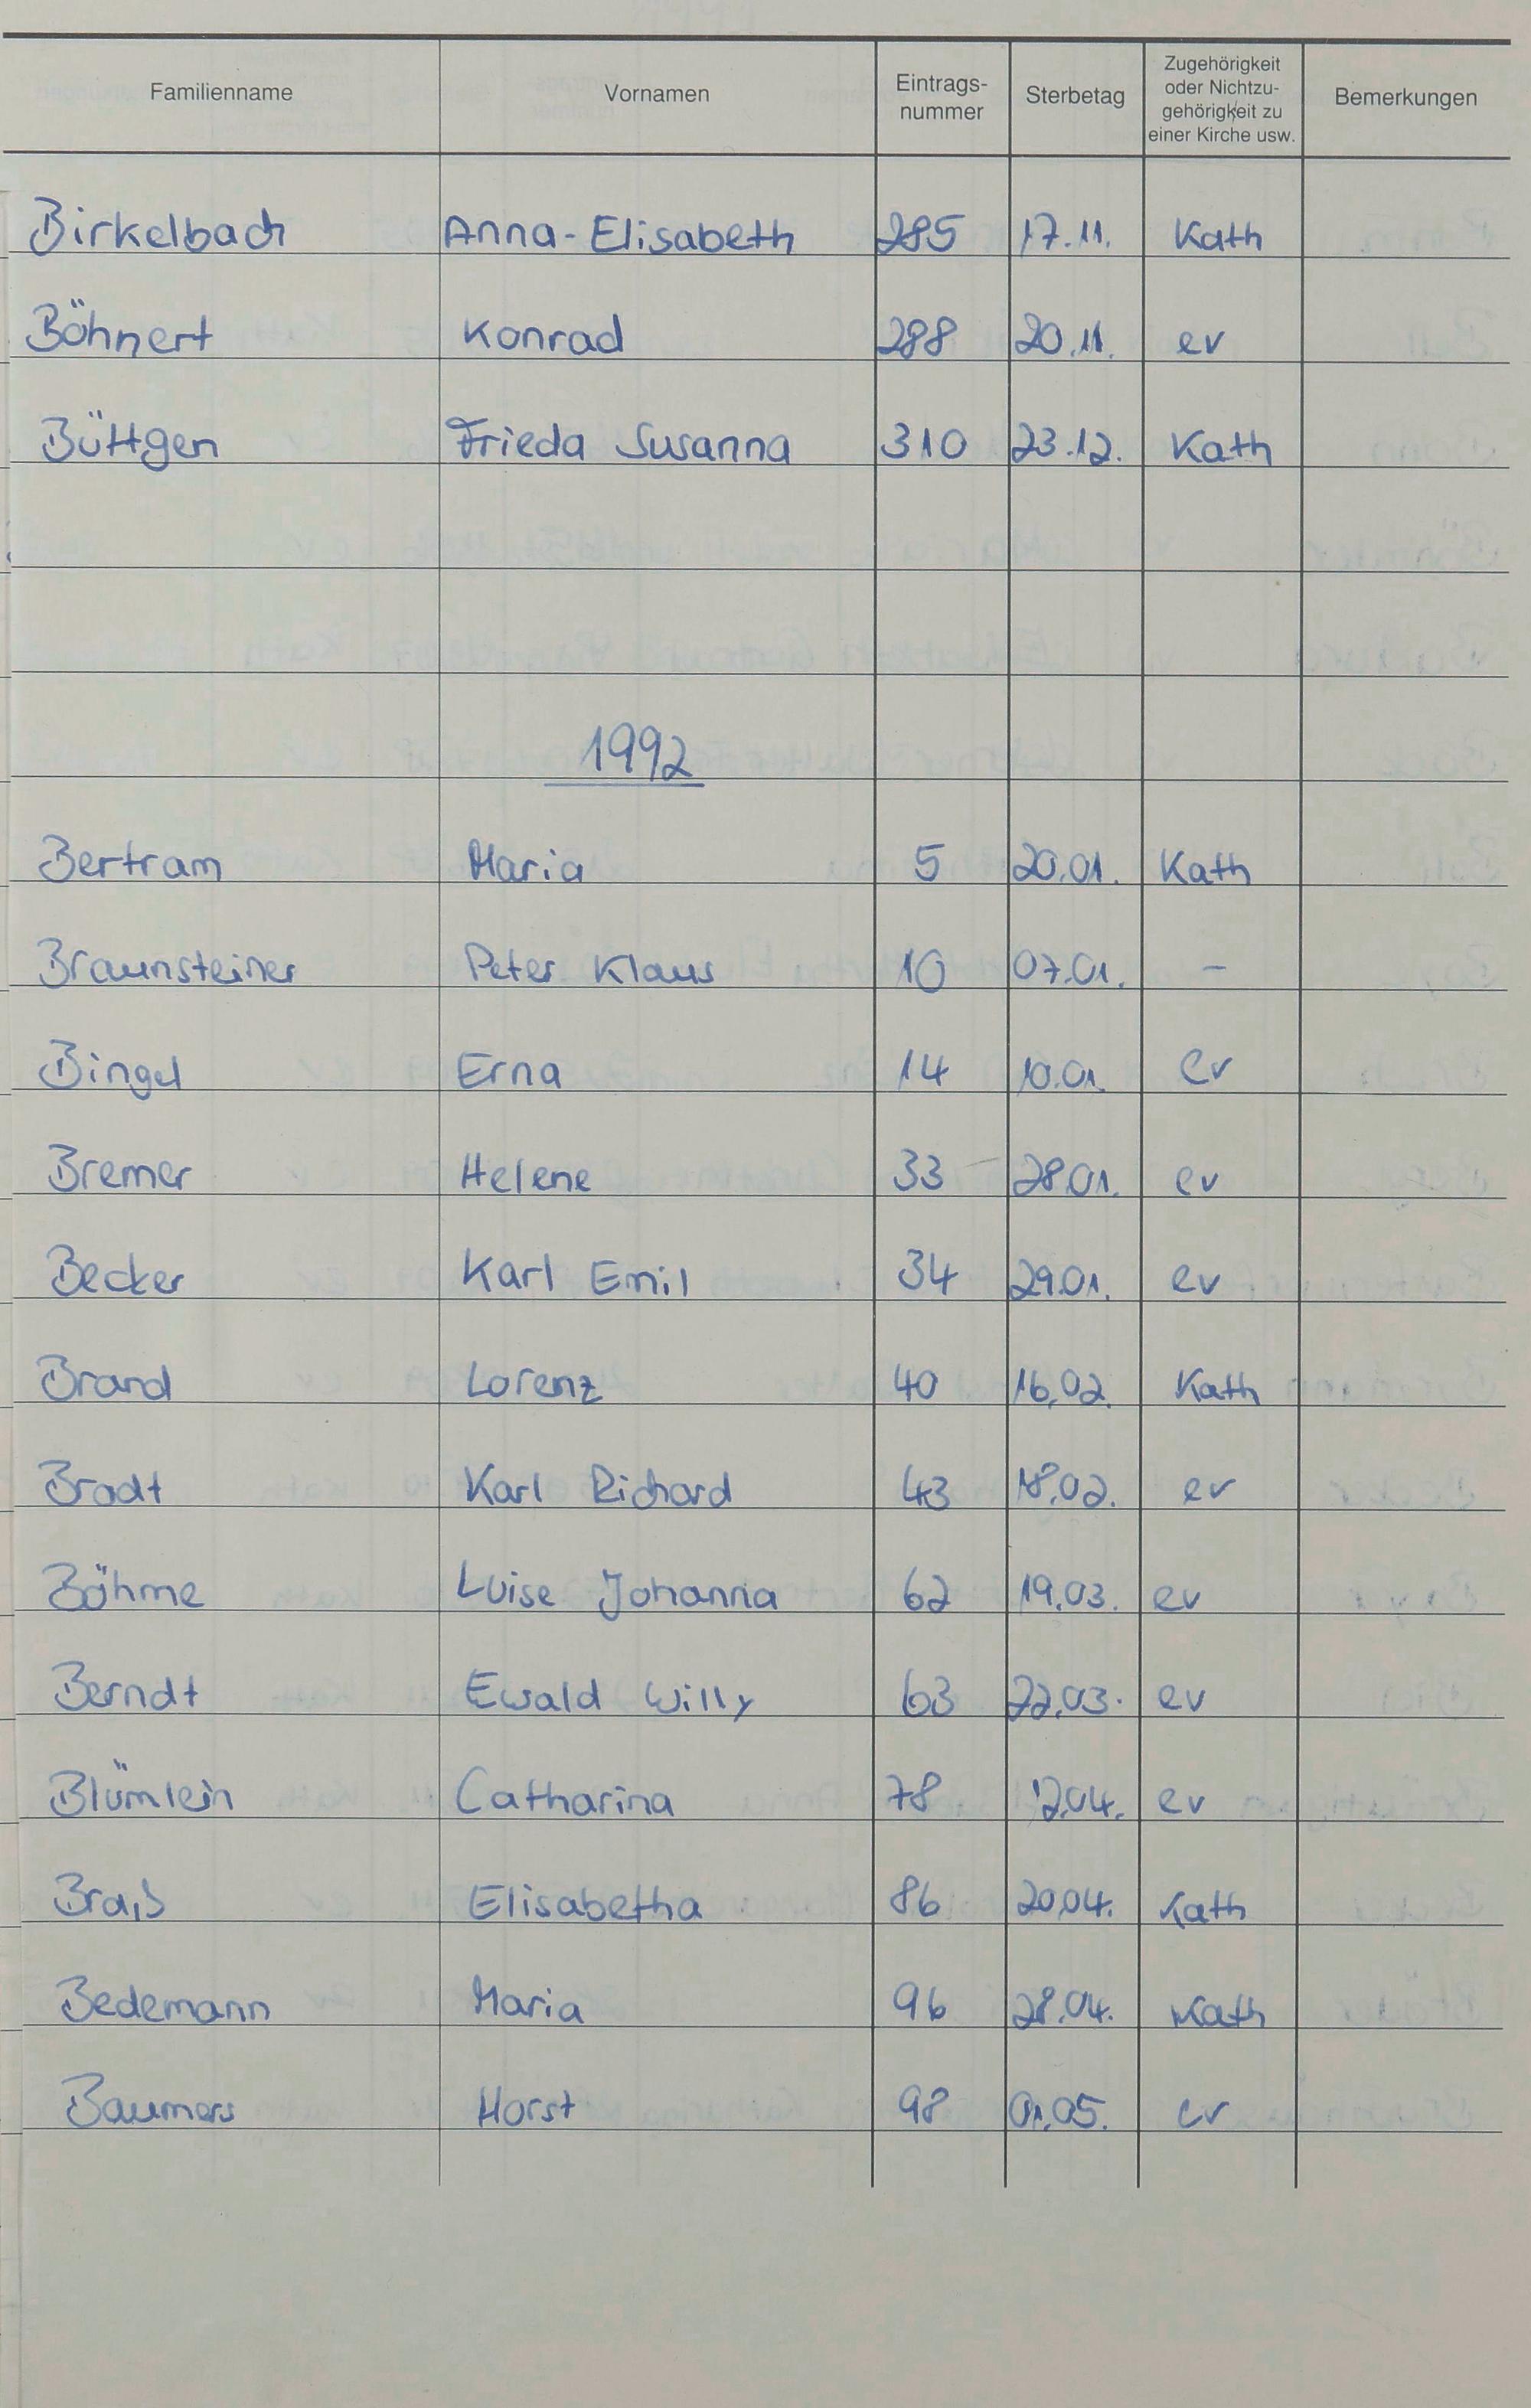 Familienname Vornamen Eintrags-nummer Sterbetag Zugehörigkeit oder Nichtzu-gehörigkeit zu einer Kirche usw. Bemerkungen
Birkelbach Anna-Elisabeth 285 17.11. Kath
Böhnert Konrad 288 20.11. ev
Büttgen Frieda Susanna 310 23.12. Kath
1992
Bertram Maria 5 20.01. Kath
Braunsteiner Peter Klaus 10 07.01. -
Bingel Erna 14 10.01. ev
Bremer Helene 33 28.01. ev
Becker Karl Emil 34 29.01. ev
Brand Lorenz 40 16.02. Kath
Bradt Karl Richard 43 18.02. ev
Böhme Luise Johanna 62 19.03. ev
Berndt Ewald Willy 63 22.03. ev
Blümlein Catharina 78 12.04. ev
Braß Elisabetha 86 20.04. Kath
Bedemann Maria 96 28.04. Kath
Baumers Horst 98 01.05. ev